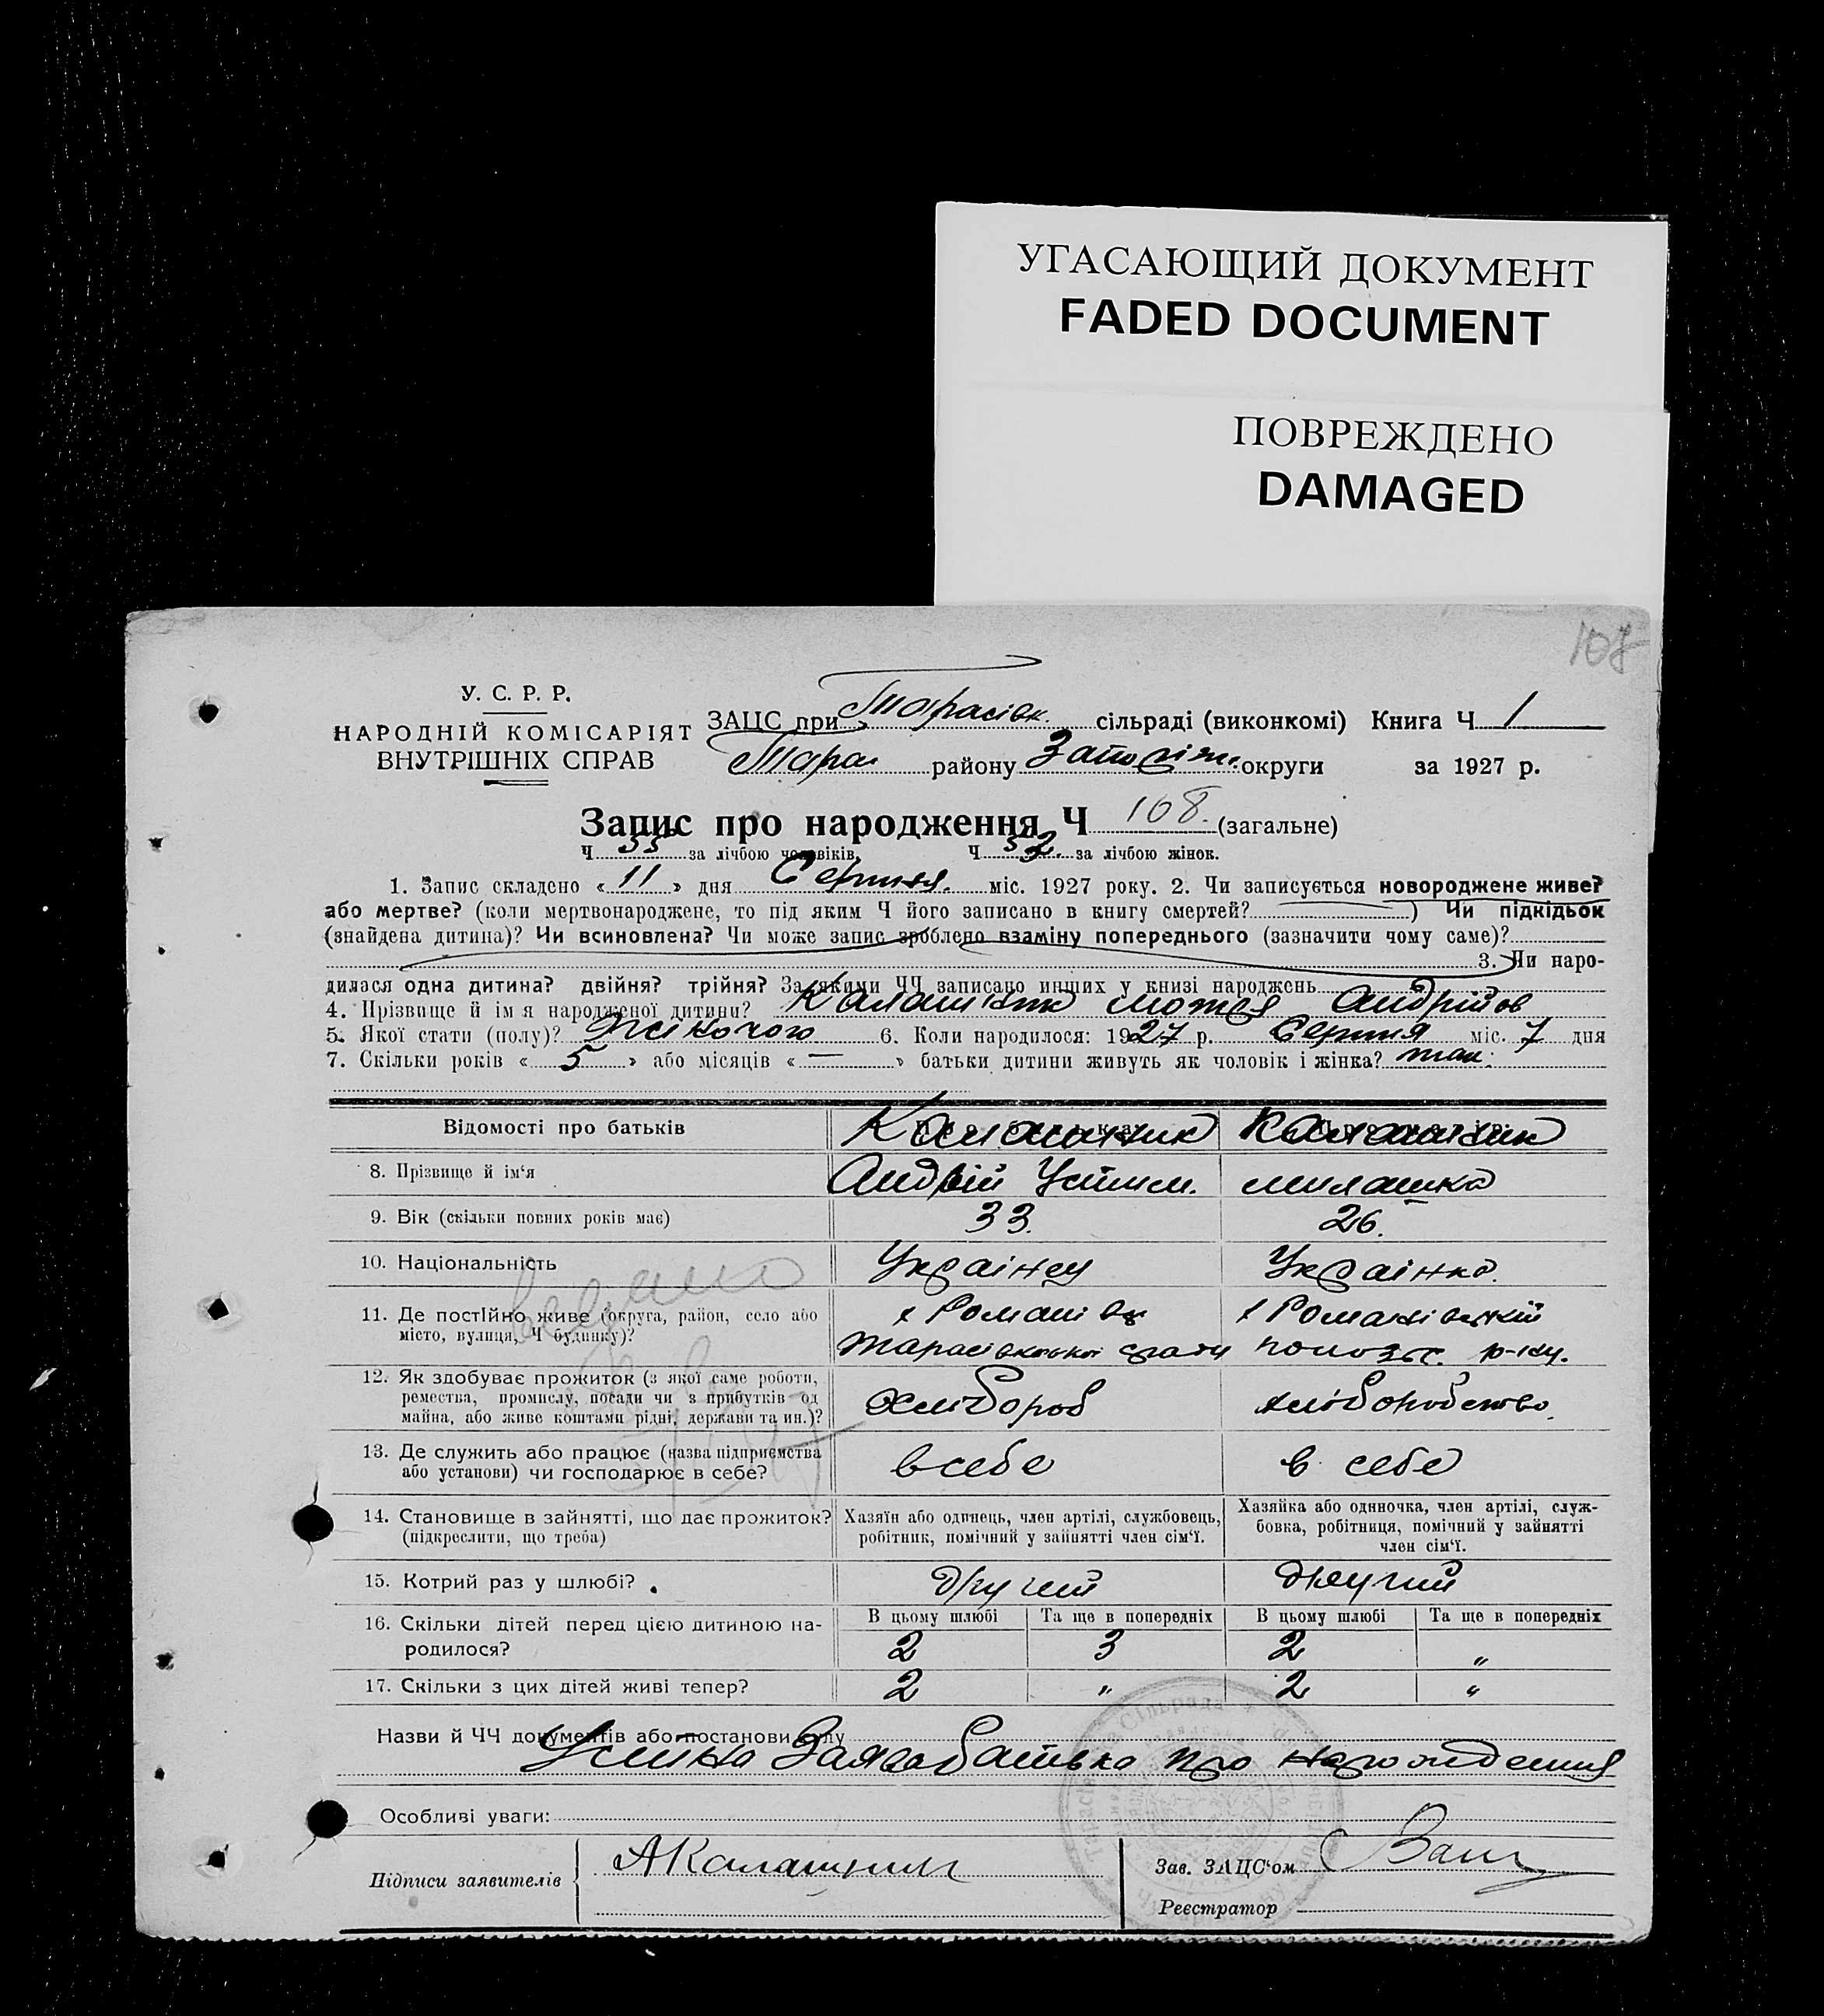 УГАСАЮЩИЙ ДОКУМЕНТ
FADED DOCUMENT
ПОВРЕЖДЕНО
DAMAGED
У. С. Р. Р.
НАРОДНІЙ КОМІСАРІЯТ
ВНУТРІШНІХ СПРАВ
ЗАЦС при Тарасівк. сільраді (виконкомі) Книга Ч 1
району Запоріж. округи за 1927 р.
Запис про народження Ч 108. (загальне)
Ч 55 за лічбою чоловіків. Ч за лічбою жінок.
1. Запис складено « 11 » дня Серпня. міс. 1927 року. 2. Чи записується новороджене живе?
або мертве? (коли мертвонароджене, то під яким Ч його записано в книгу смертей? ) Чи підкідьок
(знайдена дитина)? Чи всиновлена? Чи може запис зроблено взаміну попереднього (зазначити чому саме)?
3. Чи наро-
дилася одна дитина? двійня? трійня? За якими ЧЧ записано инших у книзі народжень
4. Прізвище й ім я народженої дитини? Калашник Андрійов
5. Якої стати (полу)? Жіночого 6. Коли народилося: 1927 р. Серпня міс. 7 дня
7. Скільки років « 5 » або місяців « — » батьки дитини живуть як чоловік і жінка? так.
Відомості про батьків Калашник Калашник
8. Прізвище й ім'я Андрій Устим. милашка
9. Вік (скільки повних років має) 33. 26.
10. Національність Українец Українка.
11. Де постійно живе (округа, район, село або х Романівк х Романівський
місто, вулиця, Ч будинку)? Тарасівської р-ну.
12. Як здобуває прожиток (з якої саме роботи,
ремества, промислу, посади чи з прибутків од Хлібороб хліборобство
майна, або живе коштами рідні, держави та ин.)?
13. Де служить або працює (назва підприємства всебе в себе
або установи) чи господарює в себе?
14. Становище в зайнятті, що дає прожиток? Хазяїн або одинець, член артілі, службовець, Хазяйка або одиночка, член артілі, служ-
(підкреслити, що треба) робітник, помічний у зайнятті член сім'ї. бовка, робітниця, помічний у зайнятті
член сім'ї.
15. Котрий раз у шлюбі? другий другий
16. Скільки дітей перед цією дитиною на- В цьому шлюбі Та ще в попередніх В цьому шлюбі Та ще в попередніх
родилося? 2 3 2 "
17. Скільки з цих дітей живі тепер? 2 " 2 "
Назви й ЧЧ документів або постанови суду
Устна Заява батька про народження
Особливі уваги:
Підписи заявителів АКалашник Зав. ЗАЦС'ом
Реєстратор